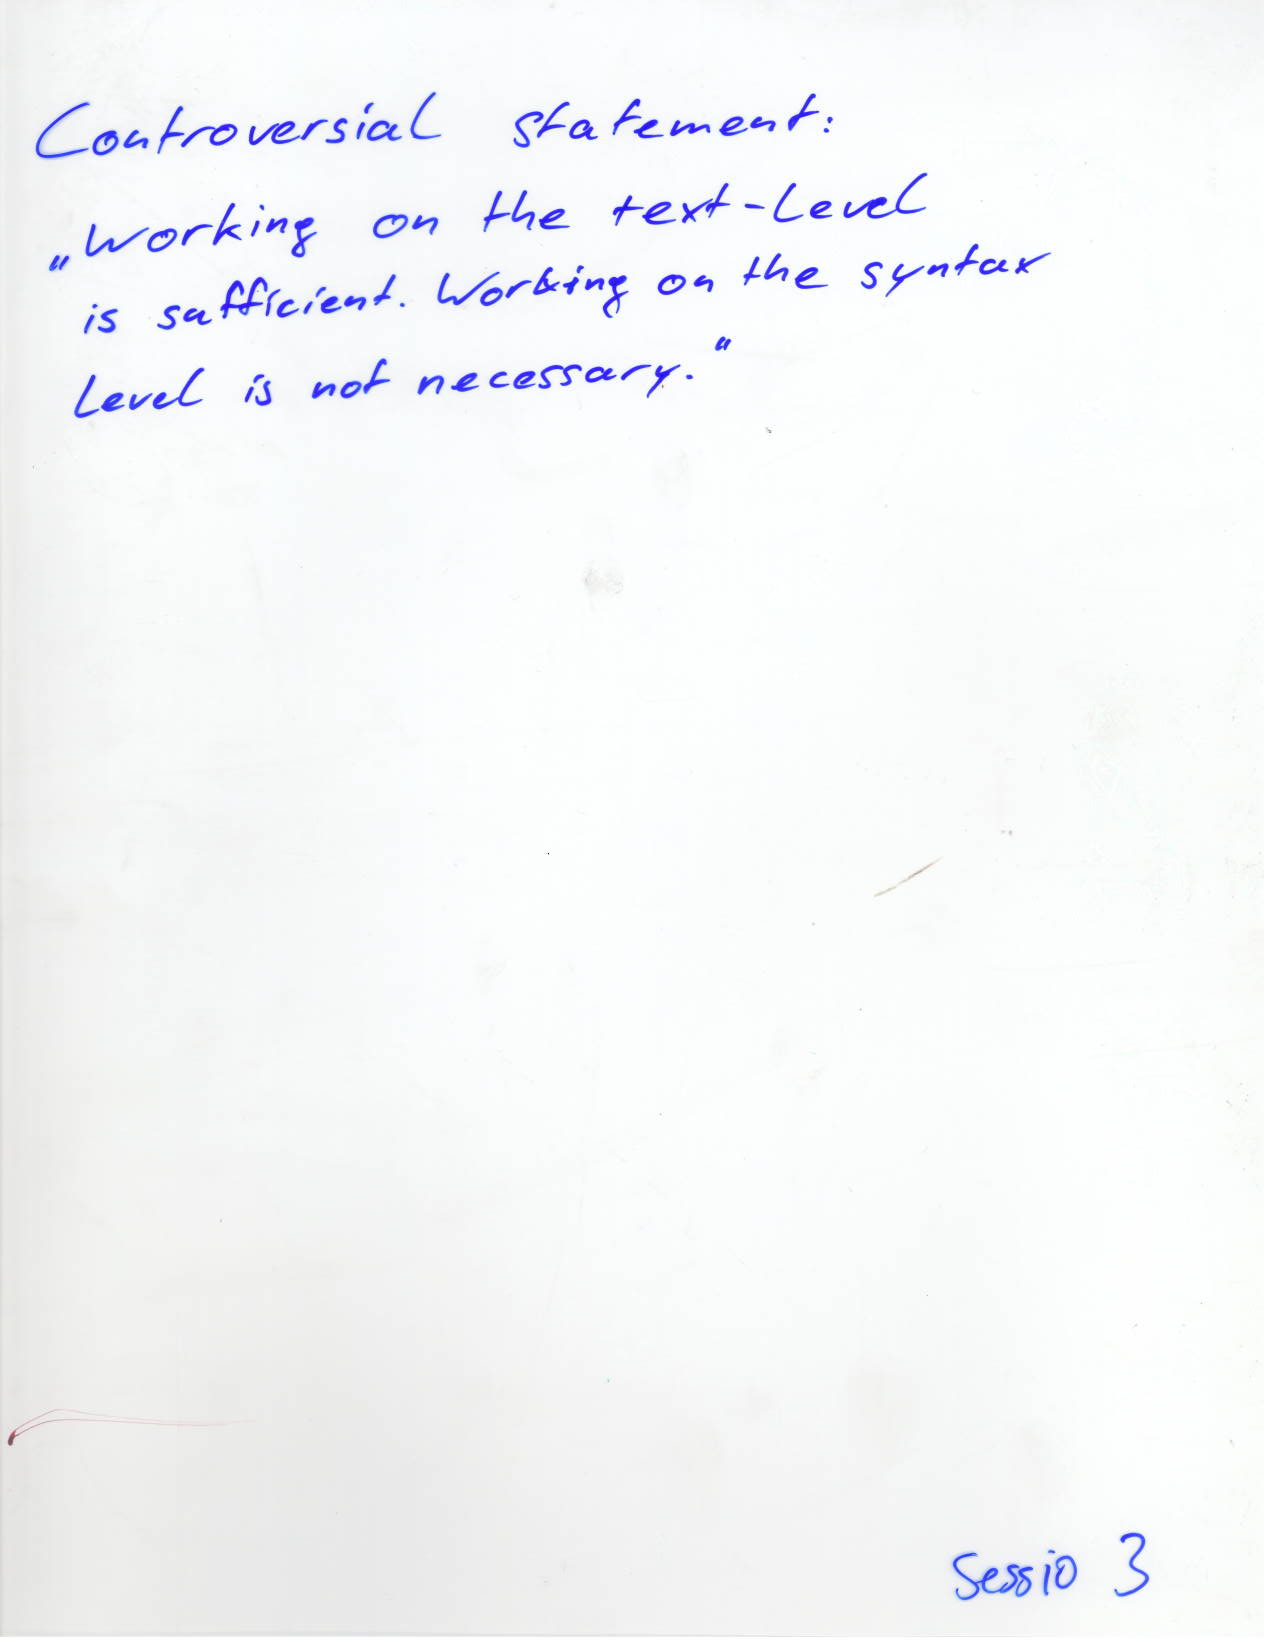 Controversial statement:
„Working on the text-level
is sufficient. Working on the syntax
level is not necessary."
Sessio 3